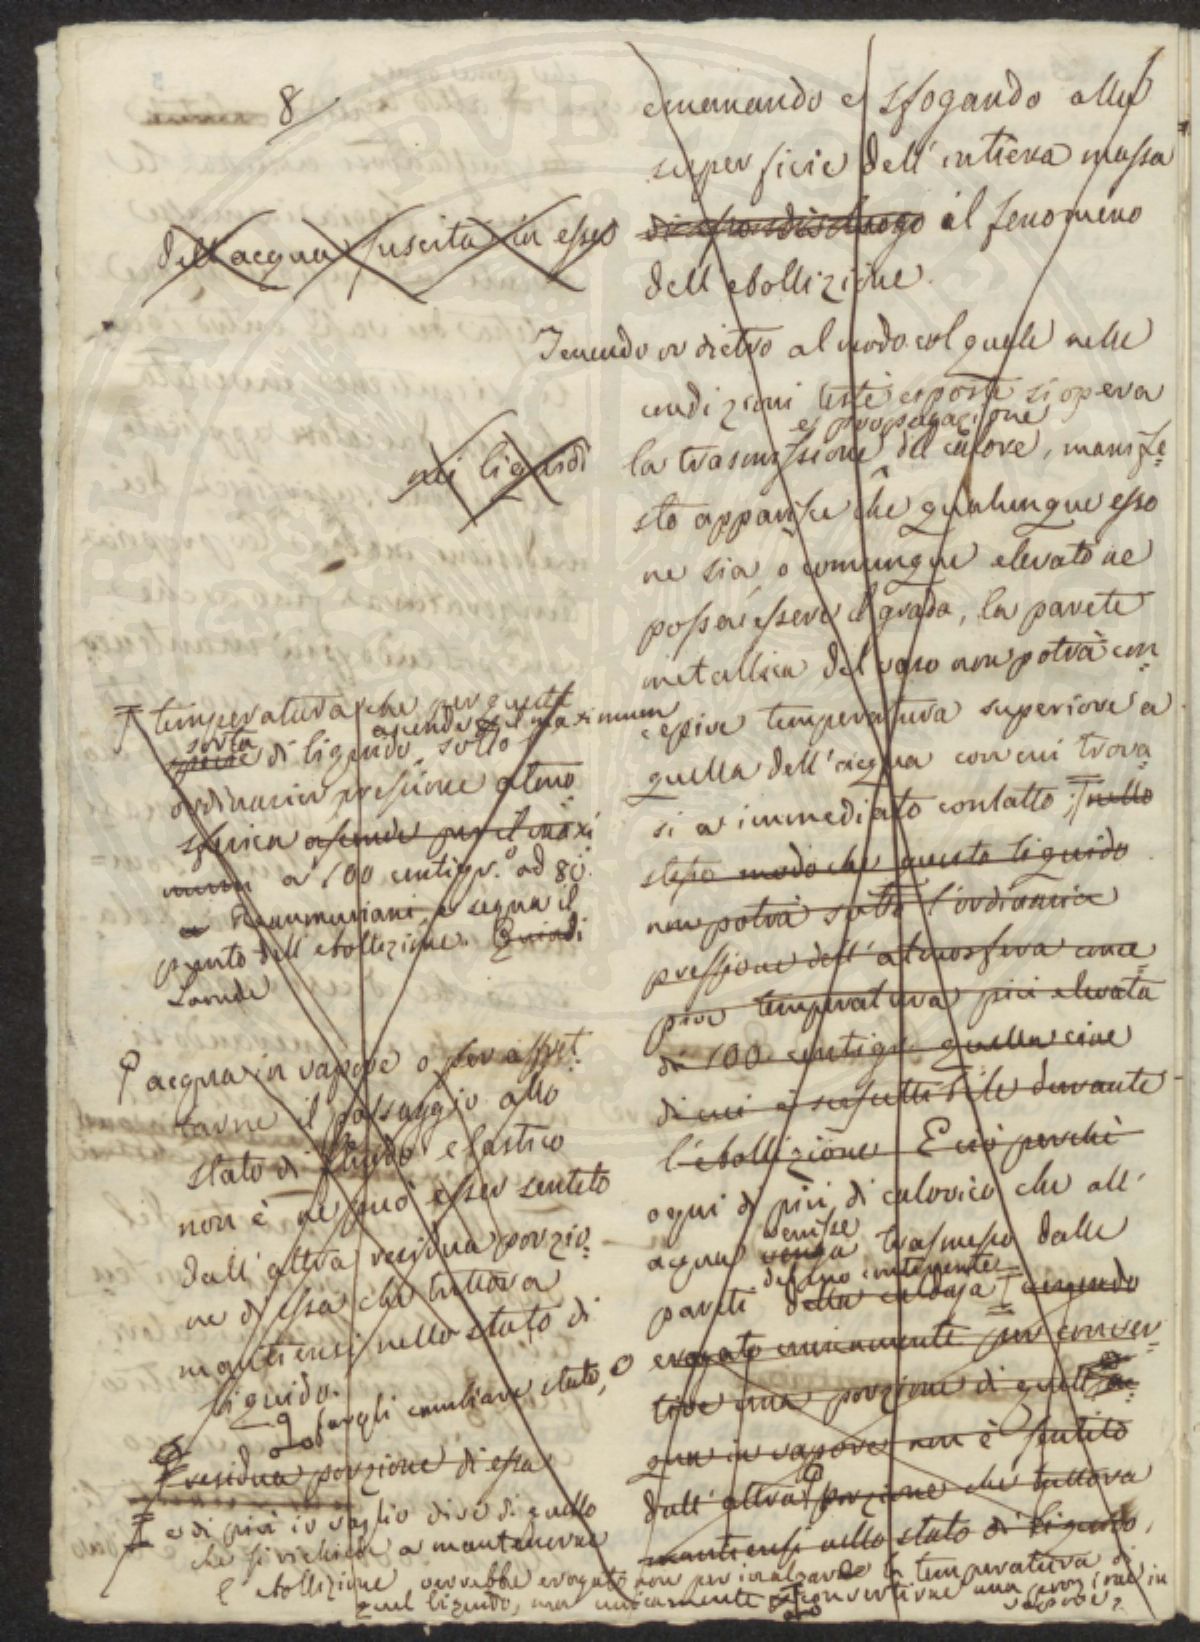 8
emanando e sfogando alla
superficie dell'intiera massa
il fenomeno
dell'ebollizione.
dell'acqua suscita in esso
Tenendo or dietro al modo col quale nelle
condizioni testè esposte si opera
e propagazione
la trasmissione del calore, manife=
sto apparisce che qualunque esso
ne sia, o comunque elevato ne
possa essere il grado, la parete
metallica del vaso non potrà con=
cepire temperatura superiore a
quella dell'acqua con cui trova=
si a immediato contatto; nello
stesso modo che questo liquido
non potrà sotto l'ordinaria
pressione dell'atmosfera conce=
pire temperatura più elevata
di 100 centigr. quella cioè
di cui è suscettibile durante
l'ebollizione. E ciò perchè
ogni di più di calorico che all'
acqua venga trasmesso dalle
venisse
pareti della caldaja venendo
del suo contenente
erogato unicamente per conver=
tire una porzione di quell'ac=
qua in vapore non è sentito
dall'altra porzione che tuttora
mantiensi nello stato di liquido,
nei liquidi
temperatura che per questa
sorta
specie di liquido, sotto
ascende al maximum
ordinaria pressione atmo=
sferica ascende per il maxi
mum a 100 centigr. ad 80.
Reaumuriani e segna il
punto dell'ebollizione. Quindi
Laonde
acqua in vapore o per affret=
tarne il passaggio allo
stato di fluido elastico
non è nè può esser sentito
dall'altra residua porzio=
ne di essa che tuttora
mantiensi nello stato di
liquido.
fargli cambiare stato, o
residua porzione di essa
e di più io voglio dire di quello
che si richiede a mantenerne
l'ebollizione, verrebbe erogato non per innalzare la temperatura di
quel liquido, ma unicamente convertirne una porzione in
vapore,